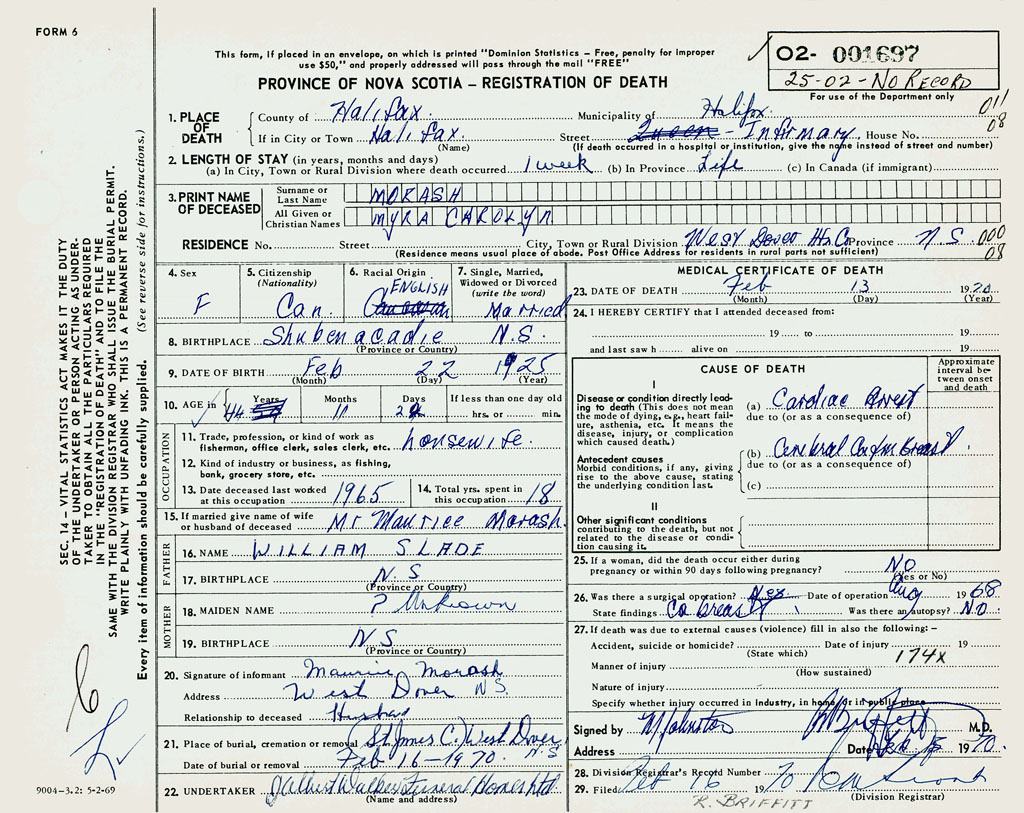 FORM 6
This form, if placed in an envelope, on which is printed "Dominion Statistics – Free, penalty for improper
use $50," and properly addressed will pass through the mail "FREE"
PROVINCE OF NOVA SCOTIA – REGISTRATION OF DEATH
02- 001697
25-02-NO RECORD
For use of the Department only
SEC. 14 – VITAL STATISTICS ACT MAKES IT THE DUTY
OF THE UNDERTAKER OR PERSON ACTING AS UNDER-
TAKER TO OBTAIN ALL THE PARTICULARS REQUIRED
IN THE "REGISTRATION OF DEATH" AND TO FILE THE
SAME WITH THE DIVISION REGISTRAR WHO SHALL ISSUE THE BURIAL PERMIT.
WRITE PLAINLY WITH UNFADING INK. THIS IS A PERMANENT RECORD.
Every item of information should be carefully supplied. (See reverse side for instructions.)
1. PLACE OF DEATH
County of Halifax Municipality of Halifax 011
If in City or Town Halifax (Name) Street Queen - Infirmary House No. 08
(If death occurred in a hospital or institution, give the name instead of street and number)
2. LENGTH OF STAY (in years, months and days)
(a) In City, Town or Rural Division where death occurred 1 week (b) In Province Life (c) In Canada (if immigrant)
3. PRINT NAME OF DECEASED
Surname or Last Name MORASH
All Given or Christian Names MYRA CAROLYN
RESIDENCE No. Street City, Town or Rural Division West Dover Hx Co Province N.S. 000
(Residence means usual place of abode. Post Office Address for residents in rural parts not sufficient) 08
4. Sex F
5. Citizenship (Nationality) Can.
6. Racial Origin ENGLISH
7. Single, Married, Widowed or Divorced (write the word) Married
8. BIRTHPLACE Shubenacadie N.S.
(Province or Country)
9. DATE OF BIRTH Feb 22 1925
(Month) (Day) (Year)
10. AGE in Years 44 Months 11 Days 22 If less than one day old
hrs. or min.
OCCUPATION
11. Trade, profession, or kind of work as fisherman, office clerk, sales clerk, etc. housewife.
12. Kind of industry or business, as fishing, bank, grocery store, etc.
13. Date deceased last worked at this occupation 1965
14. Total yrs. spent in this occupation 18
15. If married give name of wife or husband of deceased Mr Maurice Morash.
FATHER
16. NAME WILLIAM SLADE
17. BIRTHPLACE N.S
(Province or Country)
MOTHER
18. MAIDEN NAME ? Unknown
19. BIRTHPLACE N.S
(Province or Country)
20. Signature of informant Maurice Morash
Address West Dover NS.
Relationship to deceased Husband
21. Place of burial, cremation or removal St. James C. West Dover N.S
Date of burial or removal Feb 16-1970.
22. UNDERTAKER J Albert Walker Funeral Homes Ltd
(Name and address)
MEDICAL CERTIFICATE OF DEATH
23. DATE OF DEATH Feb 13 1970
(Month) (Day) (Year)
24. I HEREBY CERTIFY that I attended deceased from:
19 to 19
and last saw h alive on 19
CAUSE OF DEATH
Approximate interval between onset and death
I
Disease or condition directly leading to death (This does not mean the mode of dying, e.g., heart failure, asthenia, etc. It means the disease, injury, or complication which caused death.)
(a) Cardiac Arrest
due to (or as a consequence of)
Antecedent causes
Morbid conditions, if any, giving rise to the above cause, stating the underlying condition last.
(b) Cerebral Ca from Breast.
due to (or as a consequence of)
(c)
II
Other significant conditions
contributing to the death, but not related to the disease or condition causing it.
25. If a woman, did the death occur either during pregnancy or within 90 days following pregnancy? No
(Yes or No)
26. Was there a surgical operation? Yes Date of operation Aug 1968
State findings Ca Breast Was there an autopsy? No
27. If death was due to external causes (violence) fill in also the following: –
Accident, suicide or homicide? (State which) Date of injury 19
Manner of injury (How sustained) 174x
Nature of injury
Specify whether injury occurred in industry, in home, or in public place
Signed by M Johnston R Briffett M.D.
Address Date Feb 15 1970.
28. Division Registrar's Record Number
29. Filed Feb 16 1970
(Division Registrar)
R. BRIFFITT
9004–3.2: 5-2-69